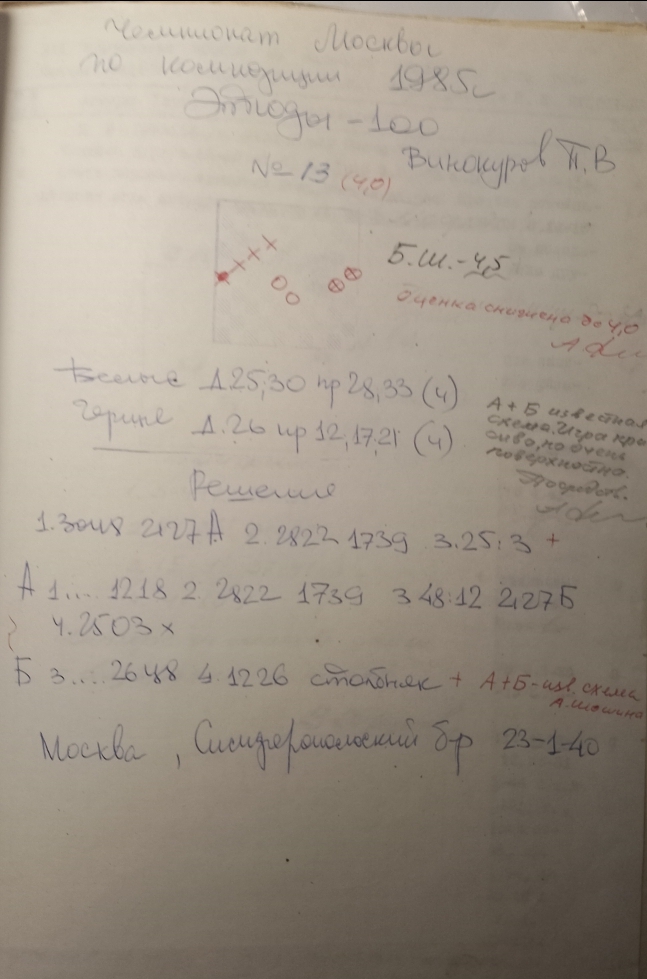 Чемпионат Москвы
по композиции 1985г
Этюды-100
Винокуров П.В
№13 (4,0)
Б.Ш.-4,5
Оценка снижена до 4,0
Белые Д.25,30 пр 28,33 (4)
Черные Д.26 пр 12,17,21 (4)
А+Б известная
схема. Игра кра
сиво, но очень
поверхностно.
Посредств.
Решения
1.3048 2127А 2.2822 1739 3.25:3 +
А 1.... 1218 2. 2822 1739 3 48:12 2127Б
4.2503 х
Б 3.... 2648 4.1226 столбняк + А+Б-изв. схема
А.Шошина
Москва, Симферопольский б-р 23-1-40